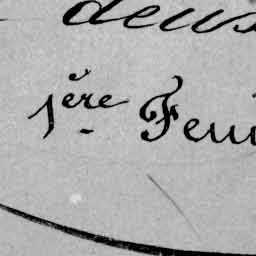 deux
1ère Feui